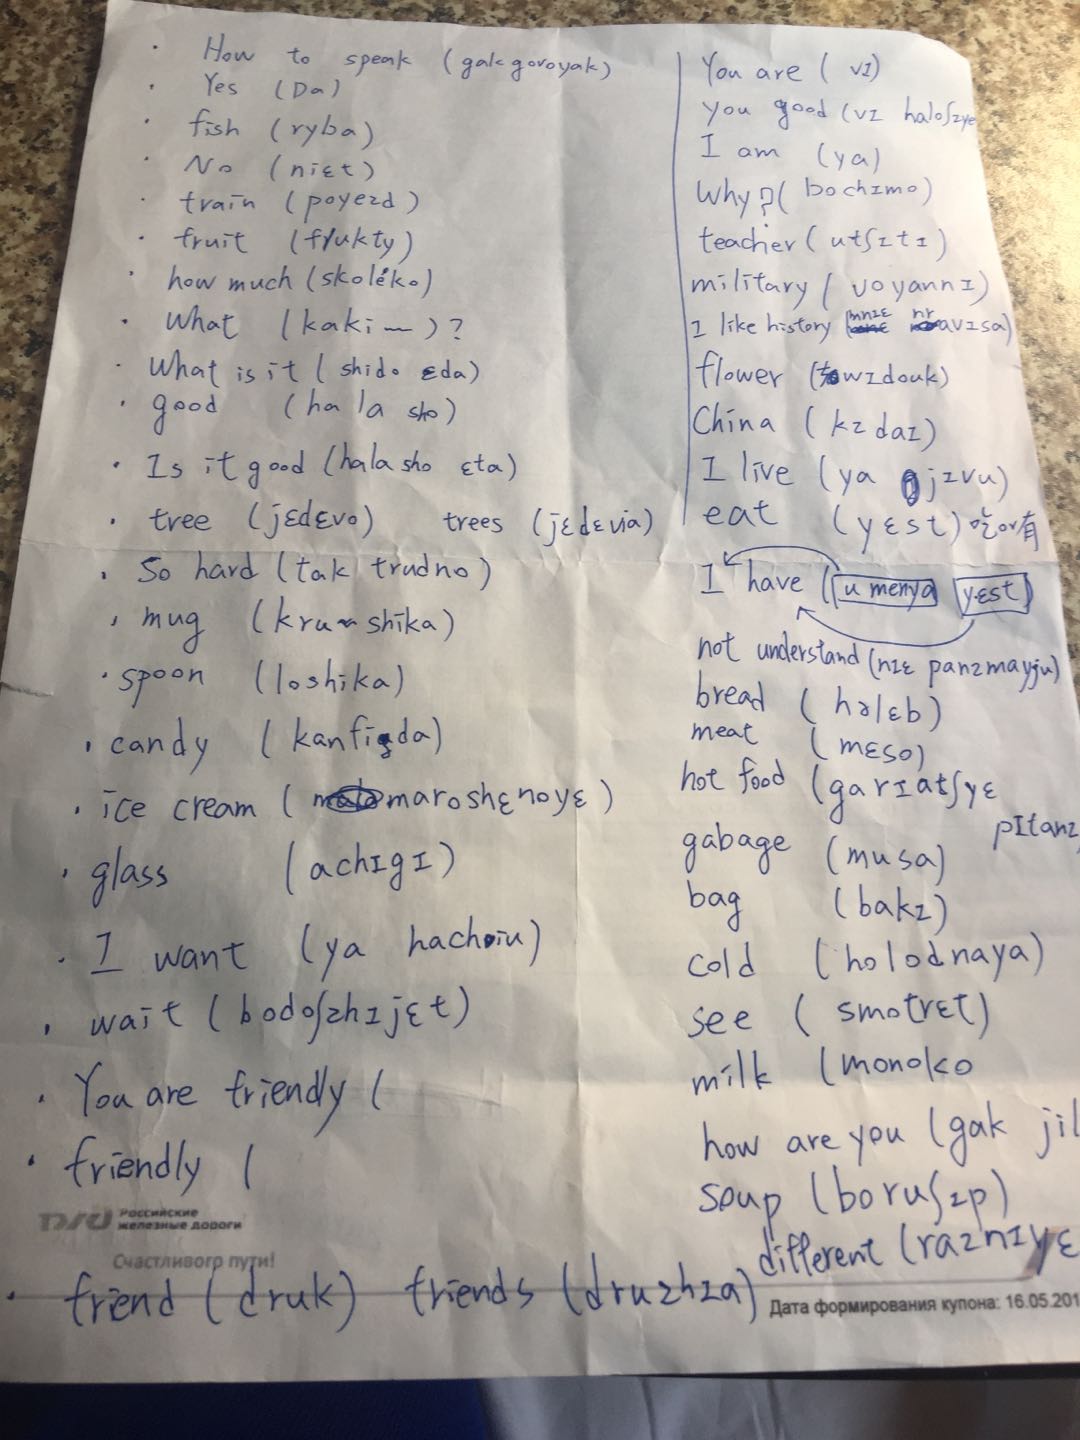 How to speak (gakgovoyak)
Yes (Da)
fish (ryba)
No (niɛt)
train (poyezd)
fruit (frukty)
how much (skoleko)
What (kaki~)?
What is it (shido ɛda)
good (ha la sho)
Is it good (hala sho ɛta)
tree (jɛdɛvo) trees (jɛdɛvia)
So hard (tak trudno)
mug (kru~shika)
spoon (loshika)
candy (kanfida)
ice cream (maroshɛnoyɛ)
glass (achɪgɪ)
I want (ya hachoiu)
wait (bodoʃzhɪjɛt)
You are friendly (
friendly (
Российские
железные дороги
Счастливого пути!
friend (druk) friends (druzhɪa)
You are (vɪ)
you good (vɪ haloʃɪye
I am (ya)
Why? (bochɪmo)
teacher (utʃɪtɪ)
military (voyannɪ)
I like history (mnɪɛ nravɪsa)
flower (wɪdouk)
China (kɪdaɪ)
I live (ya jɪvu)
eat (yɛst) 吃or有
I have (u menya yɛst)
not understand (nɪɛ panɪmayju)
bread (hələb)
meat (mɛso)
hot food (garɪatʃyɛ
pɪtanɪ
gabage (musa)
bag (bakɪ)
cold (holodnaya)
see (smotrɛt)
milk (monoko
how are you (gak jil
soup (boruʃɪp)
different (raznɪyɛ
Дата формирования купона: 16.05.201